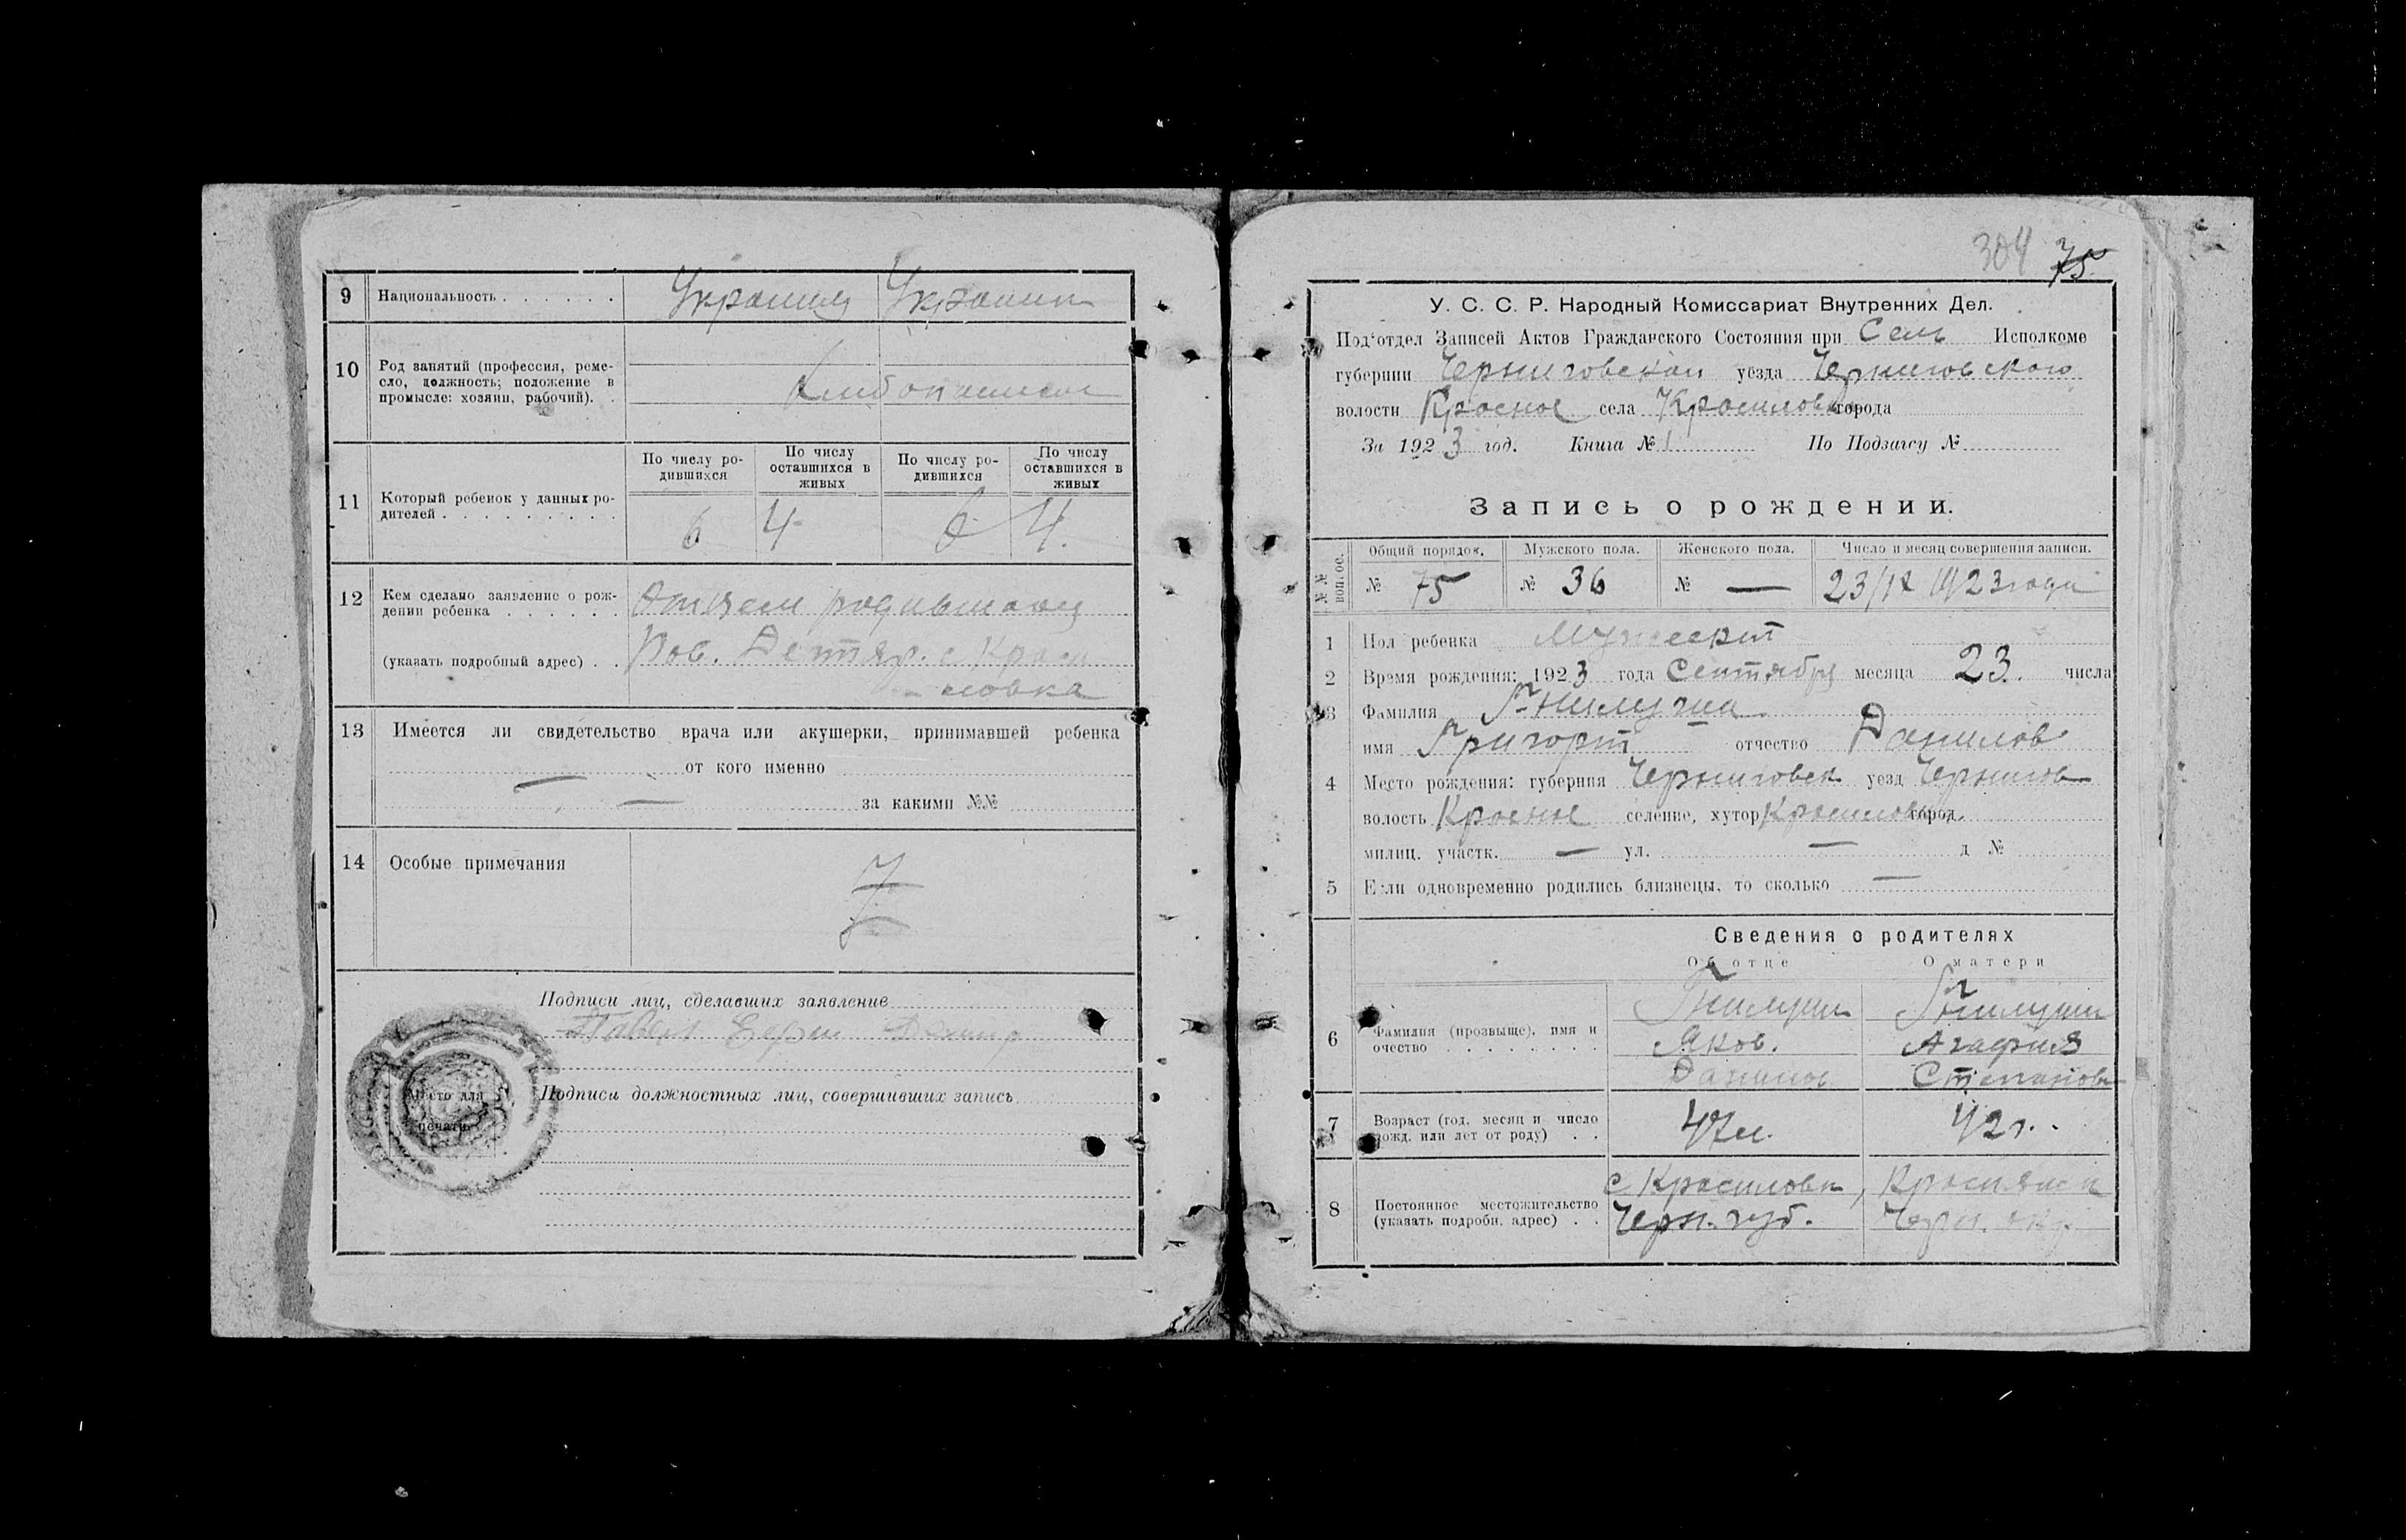 9 Национальность . . . . . . Украинц Украинк
10 Род занятий (профессия, реме-
сло, должность; положение в
промысле: хозяин, рабочий). .
11 Который ребенок у данных ро-
дителей . . . . . . . . .
По числу ро-
дившихся
По числу
оставшихся в
живых
По числу ро-
дившихся
По числу
оставшихся в
живых
6 4 6 4.
12 Кем сделано заявление о рож-
дении ребенка . . . . . . Отцем
(указать подробный адрес) . . с Краси
- ловка
13 Имеется ли свидетельство врача или акушерки, принимавшей ребенка
— от кого именно
— за какими №№
14 Особые примечания
Подписи лиц, сделавших заявление
Место для
печати.
Подписи должностных лиц, совершивших запись
304 75
У. С. С. Р. Народный Комиссариат Внутренних Дел.
Под‘отдел Записей Актов Гражданского Состояния при Сель Исполкоме
губернии Черниговской уезда Черниговского
волости Красное села Красиловка города
За 1923 год. Книга № 1 По Подзагсу №
Запись о рождении.
№№ вопрос.
Общий порядок. Мужского пола. Женского пола. Число и месяц совершения записи.
№ 75 № 36 № — 23/IX 1923 года
1 Пол ребенка Мужескит
2 Время рождения: 1923 года Сентября месяца 23. числа
3 Фамилия
имя Григорт отчество Данилов
4 Место рождения: губерния Черниговск уезд Чернигов
волость Красное селение, хутор Красиловка город
милиц. участк. — ул. — д №
5 Если одновременно родились близнецы, то сколько —
Сведения о родителях
Об отце О матери
6 Фамилия (прозвыще), имя и
очество . . . . . . . .
Яков. Агафия
Данилов Степанов
7 Возраст (год, месяц и число
рожд. или лет от роду) . .
47 л. 42 г.
8 Постоянное местожительство
(указать подробн. адрес) . .
с Красиловк,
Черн. губ.